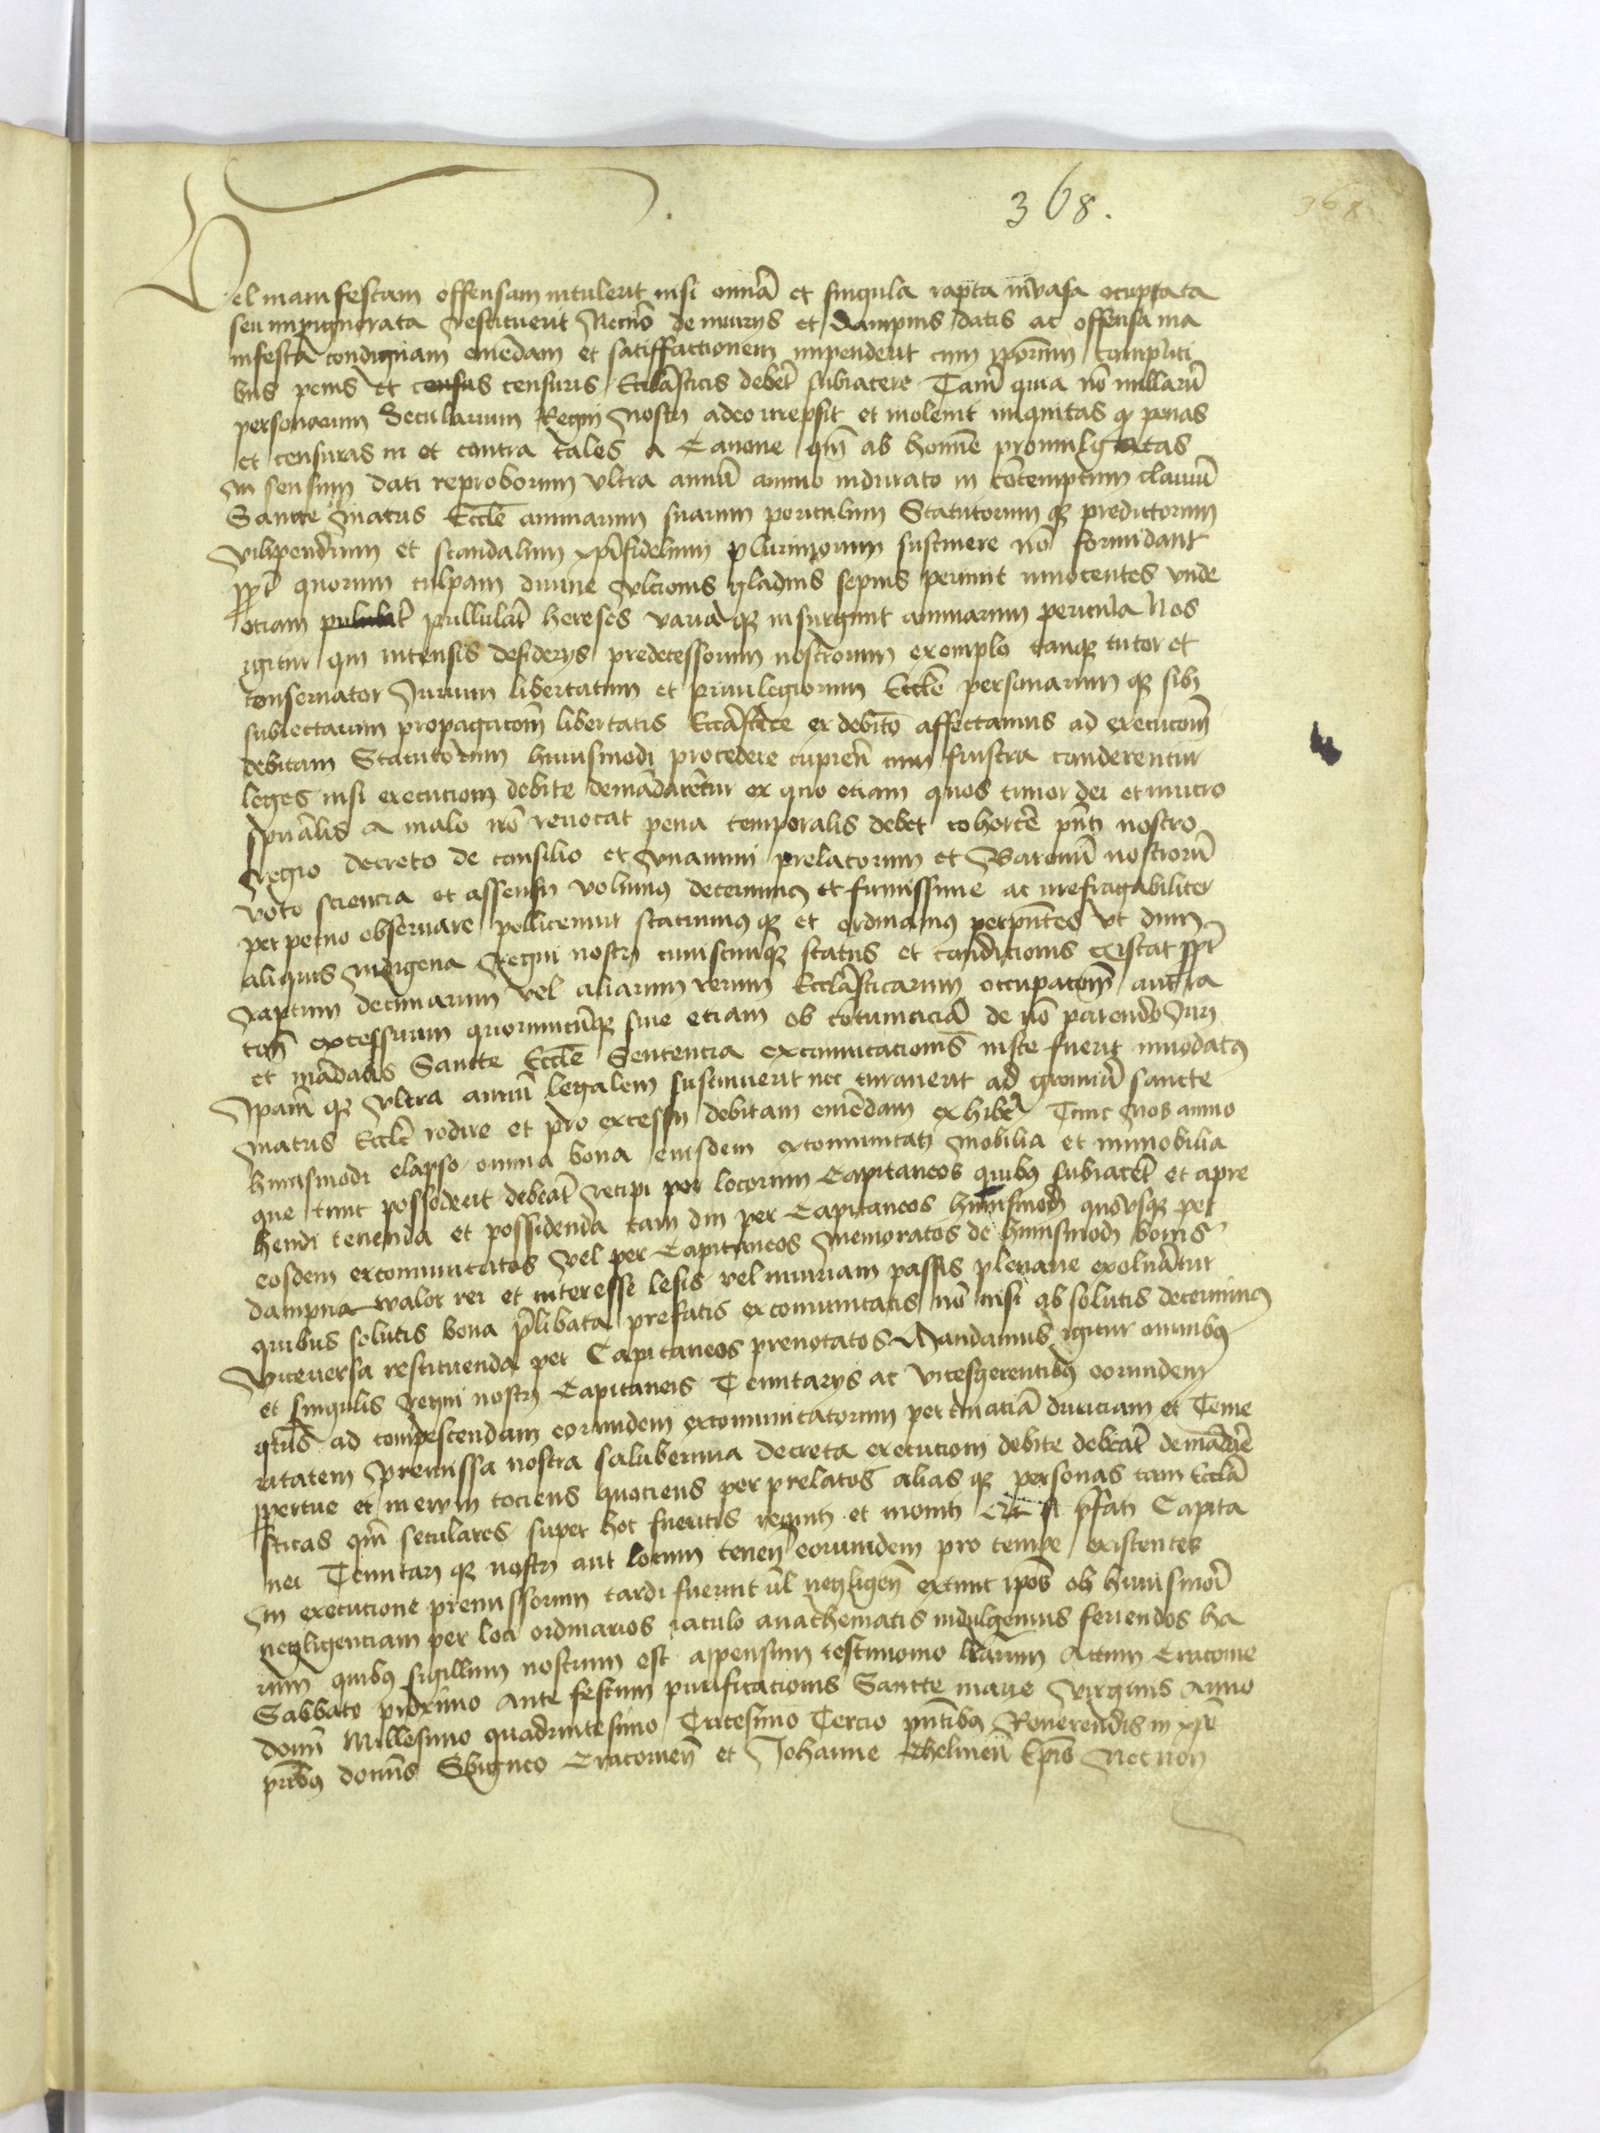 368.
368
Vel manifestam offensam intulerit nisi omnia et singula rapta invasa occupata
seu impignorata restituerit Necnō de iniuriis et dampnis datis ac offensa ma
nifesta condignam emēdam et satisfactionem impenderit cum ipōrum complici
bus penis et censuris Ecclāsticis debet subiacere Tamē quia nō nullarū
personarum Secularium Regni nostri adeo irrepsit et inolevit iniquitas q penas
et censuras in et contra tales a Canone qm̄ ab homīe promulgatas
In sensum dati reproborum vltra annū animo indurato in cōtemptum clauiū
Sancte Matris Eccle animarum suarum periculum Statutorum q predictorum
vilipendium et scandalum xp̄ifidelium plurimorum sustinere nō formidant
ppt quorum culpam diuine vltionis gladius sepius perimit innocentes vnde
etiam pullulāt hereses varia q insurgunt animarum pericula Nos
igitur qui intensis desiderijs predecessorum nostrorum exemplo tanq tutor et
conseruator Jurium libertatum et priuilegiorum Eccle personarum q sibi
subiectarum propagacōm libertatis Eccāstice ex debito affectamus ad execucōm
debitam Statutorum huiusmodi procedere cupien̄ cum frustra conderentur
leges nisi execucioni debite demādarētur ex quo etiam quos timor dei et mucro
spūalis a malo nō reuocat pena temporalis debet cohercē pn̄ti nostro
regio decreto de consilio et vnanimi prelatorum et Baronū nostrorū
voto sciencia et assensu volumus decernimus et firmissime ac irrefragabiliter
perpetuo obseruare pollicemur statuimus q et ordinamus perpn̄tes vt dum
aliquis indigena Regni nostri cuiuscunq status et condicionis existat ppt
raptum decimarum vel aliarum rerum Ecclāsticarum occupacōm aut ra
cōm excessuum quorumcūq siue etiam ob cōtumaciā de nō parendo Juri
et mādatis Sancte Eccle Sententia excōmunicacionis iuste fuerit innodatus
Ipam q vltra annū legalem sustinuerit nec curauerit ad gremiū sancte
matris Eccle redire et pro excessu debitam emēdam exhibē Tunc Nos anno
huiusmodi elapso omnia bona eiusdem excomunicati mobilia et immobilia
que tunc possederit debeāt recipi per locorum Capitaneos quibus subiacēt et apre
hendi tenenda et possidenda tam diu per Capitaneos huiusmodi quousq per
eosdem excomunicatos vel per Capitaneos memoratos de huiusmodi bonis
dampna walor rei et interesse lesis vel iniuriam passis plenarie exoluātur
quibus solutis bona p̄libata prefatis excomunicatis nō nisi absolutis decernimus
viceuersa restituenda per Capitaneos prenotatos Mandamus igitur omnibus
et singulis regni nostri Capitaneis Tenutarijs ac vicesgerentibus eorundem
qtus ad compescendam eorundem excomunicatorum pertinaciā duriciam et Teme
ritatem premissa nostra saluberrima decreta execucioni debite debeāt demādare
ppetue et in euum tociens quociens per prelatos alias q personas tam Ecclā
sticas qm̄ seculares super hoc fueritis requisiti et moniti Et si p̄fati Capita
nei Tenutarij q nostri aut locum tenen̄ eorundem pro tempe existentes
In execucione premissorum tardi fuerint vl negligen̄ extunc ipos ob huiusmōi
negligenciam per loci ordinarios iaculo anathematis indulgemus feriendos ha
rum quibus sigillum nostrum est appensum testimonio lrārum Actum Cracouie
Sabbato proximo ante festum purificacionis Sancte marie virginis Anno
domi Millesimo quadringentesimo Tricesimo Tercio pn̄tibus Reuerendis in xp̄o
prībus dominis Sbigneo Cracouien̄ et Johanne Chelmen̄ Epis Necnon